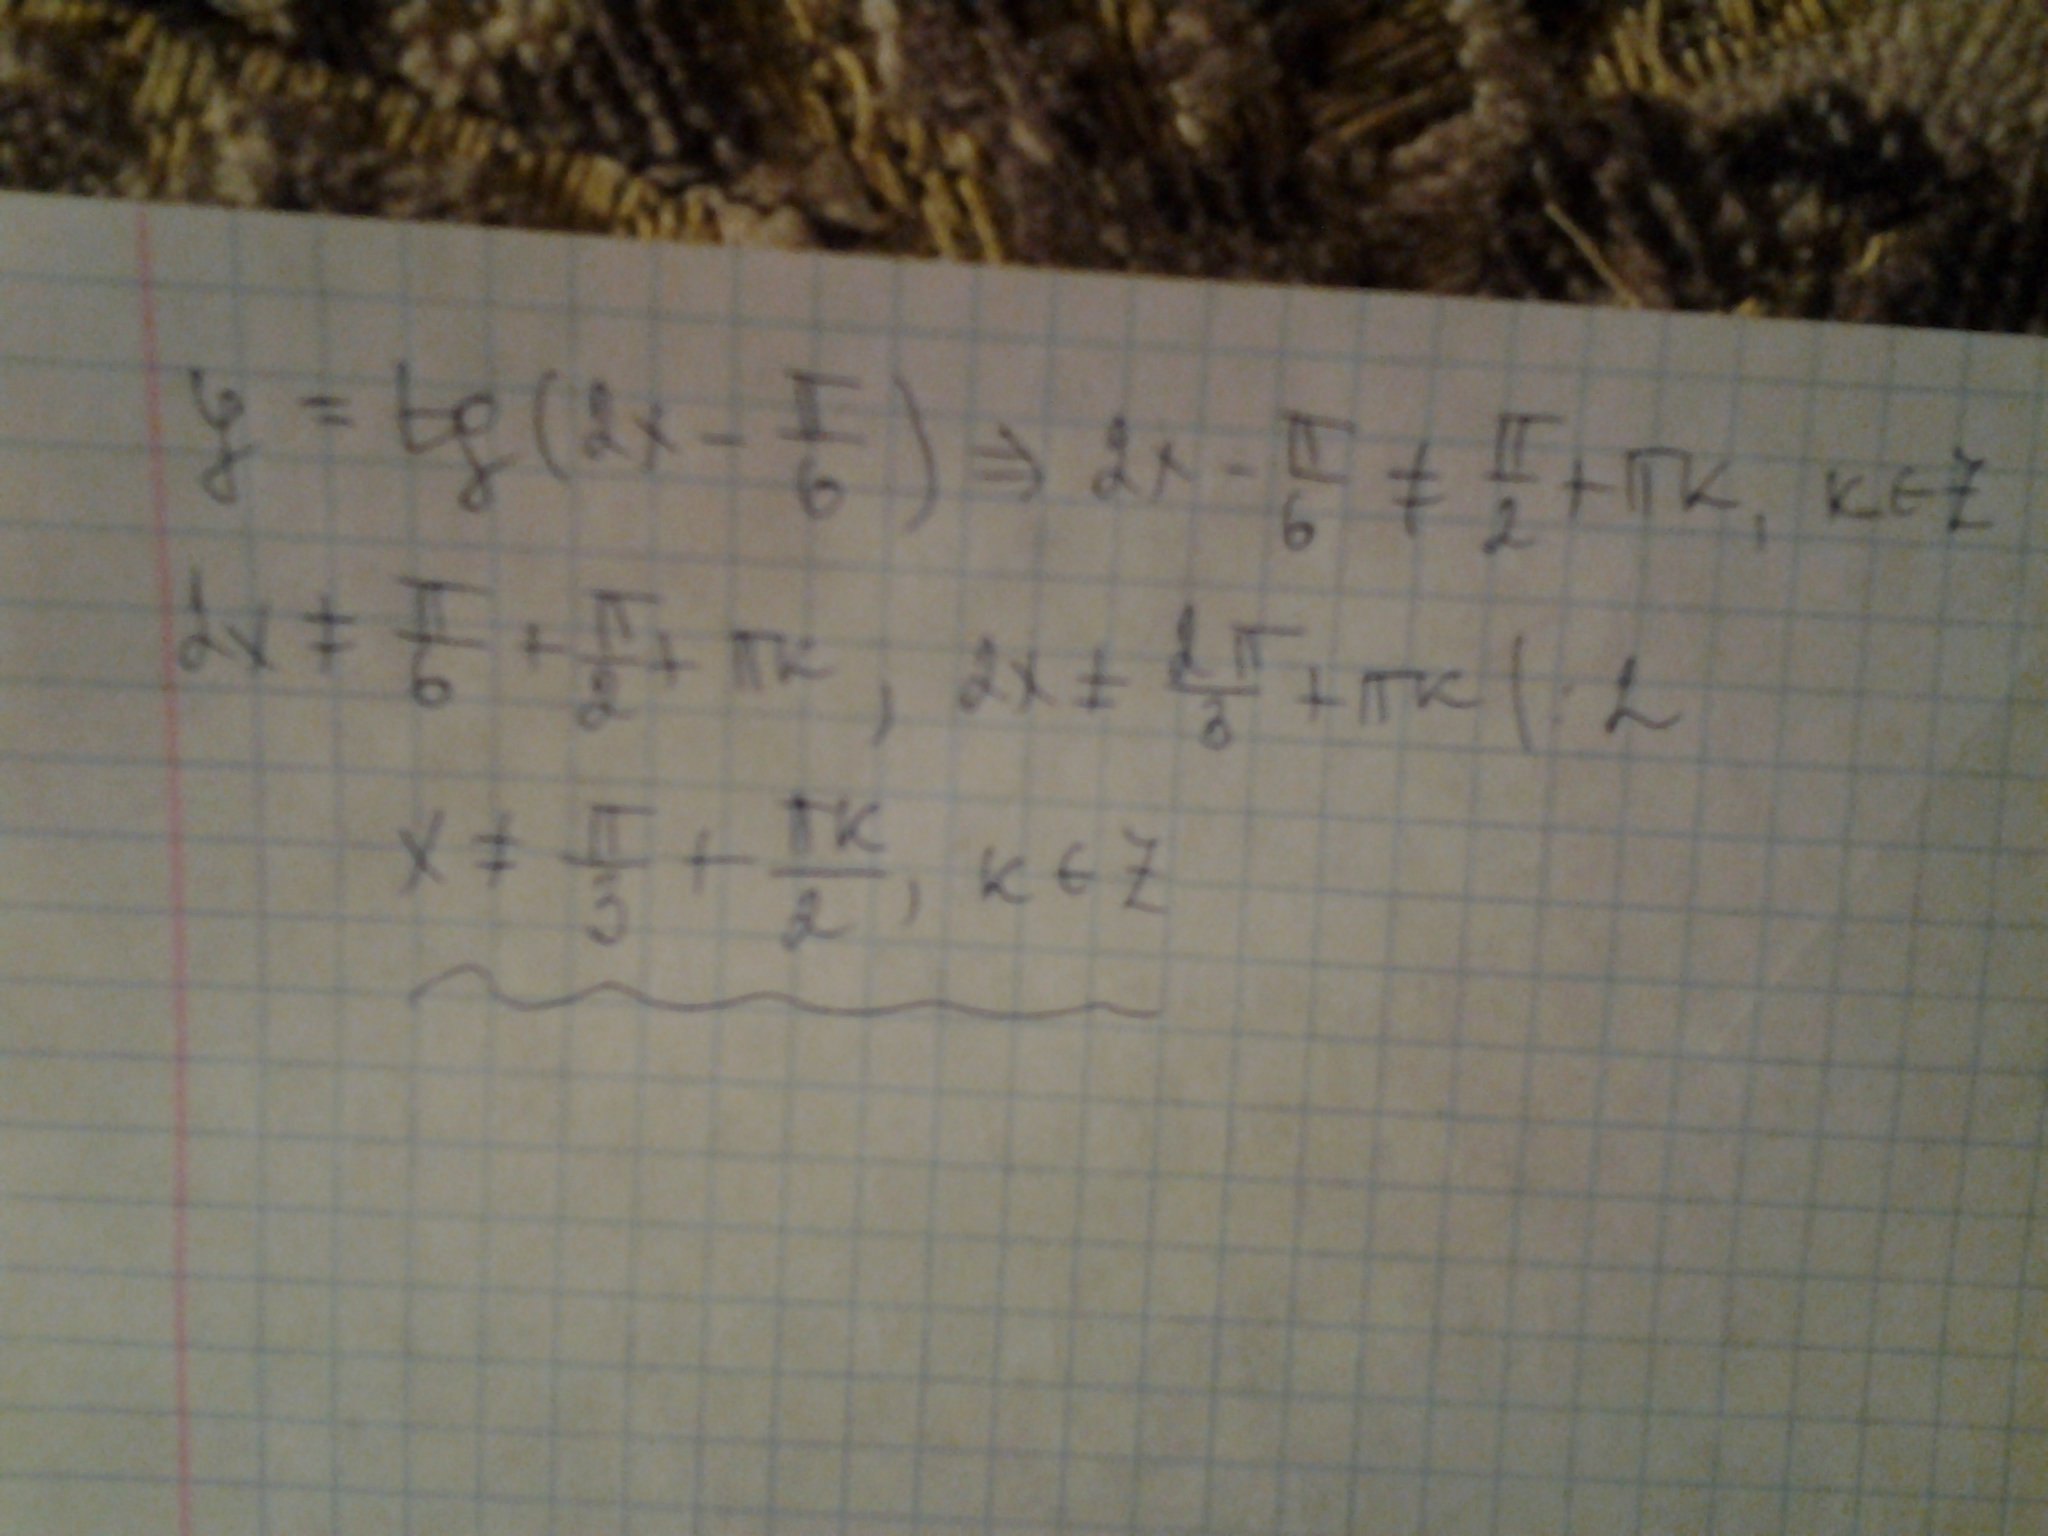 y = tg(2x - π/6) ⇒ 2x - π/6 ≠ π/2 + πк, к ∈ Z
2x ≠ π/6 + π/2 + πк, 2x ≠ 2π/3 + πк | : 2
x ≠ π/3 + πк/2, к ∈ Z